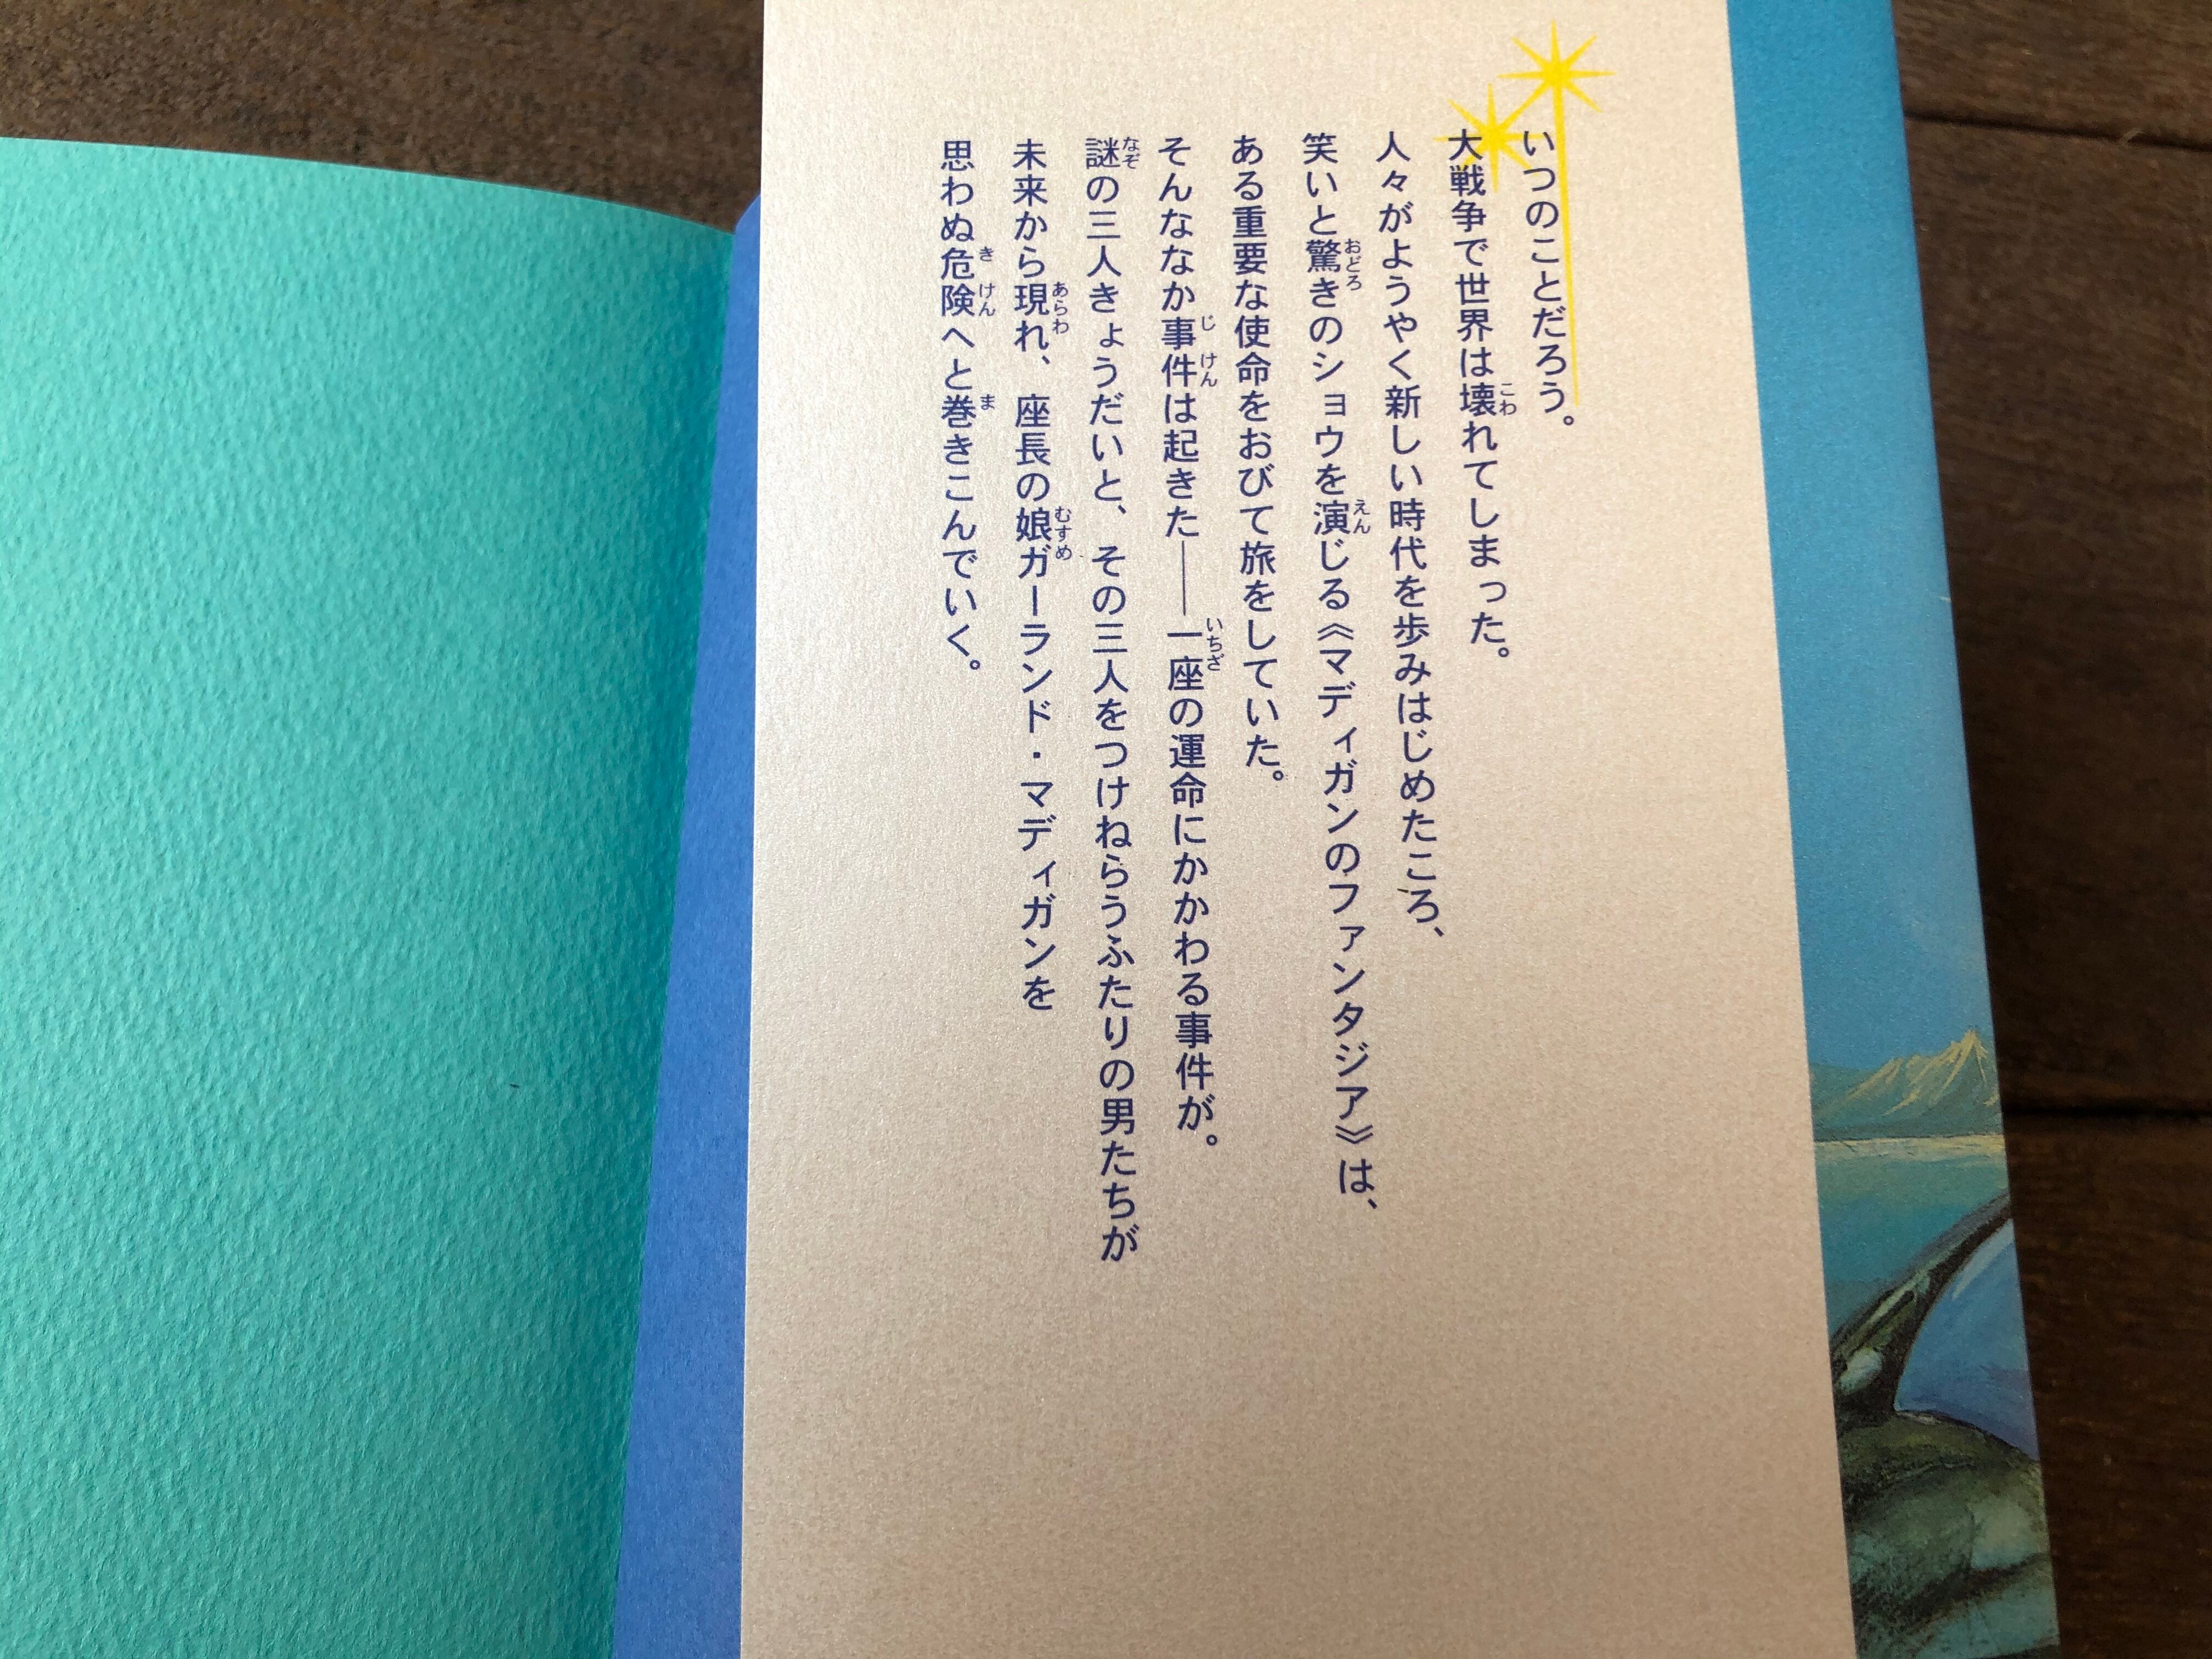 いつのことだろう。
大戦争で世界は壊れてしまった。
人々がようやく新しい時代を歩みはじめたころ、
笑いと驚きのショウを演じる《マディガンのファンタジア》は、
ある重要な使命をおびて旅をしていた。
そんななか事件は起きた――一座の運命にかかわる事件が。
謎の三人きょうだいと、その三人をつけねらうふたりの男たちが
未来から現れ、座長の娘ガーランド・マディガンを
思わぬ危険へと巻きこんでいく。